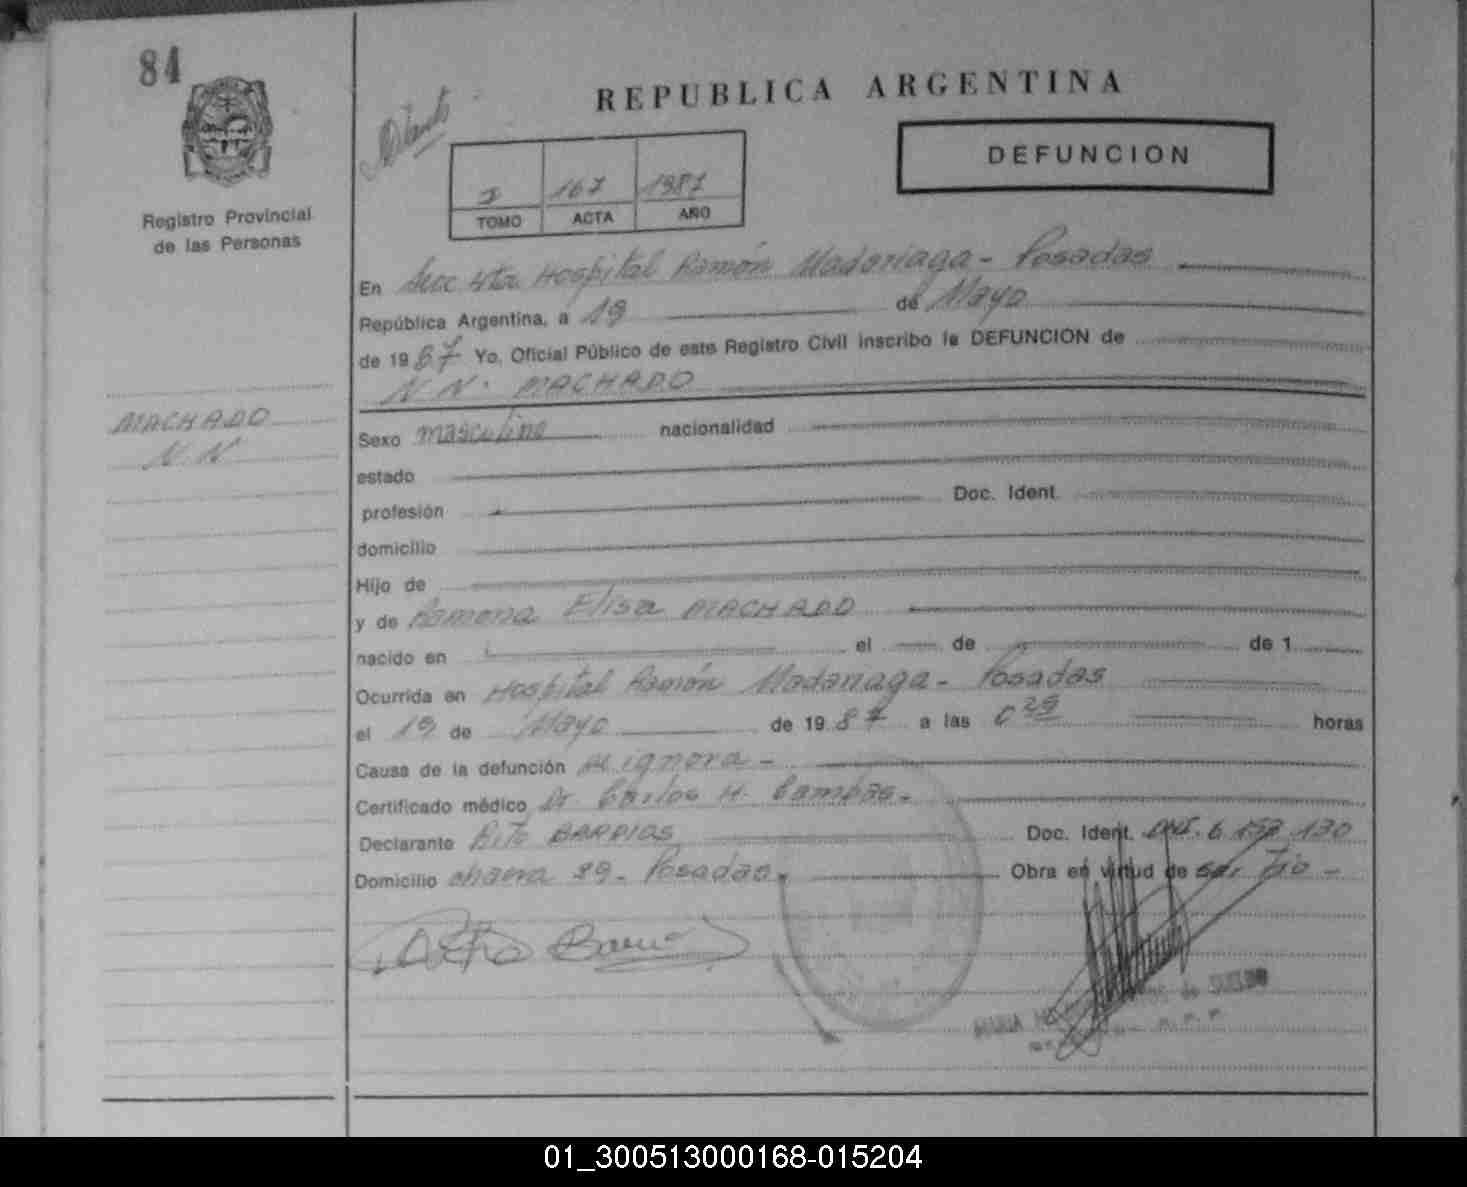 84
REPUBLICA ARGENTINA
DEFUNCION
I 167 1987
TOMO ACTA AÑO
Registro Provincial
de las Personas
En Secc 4ta Hospital Ramón Madariaga - Posadas
República Argentina, a 19 de Mayo
de 1987 Yo, Oficial Público de este Registro Civil inscribo la DEFUNCION de
N.N. MACHADO
MACHADO
N.N
Sexo masculino nacionalidad
estado
profesión Doc. Ident.
domicilio
Hijo de
y de Ramona Elisa MACHADO
nacido en el de de 1
Ocurrida en Hospital Ramón Madariaga - Posadas
el 19 de Mayo de 1987 a las 0 29 horas
Causa de la defunción se ignora -
Certificado médico Dr. Carlos H.
Declarante BARRIOS Doc. Ident. DNI. 6.152.130
Domicilio chacra 89 - Posadas. Obra en virtud de ser Tío -
MARIA de
01_300513000168-015204